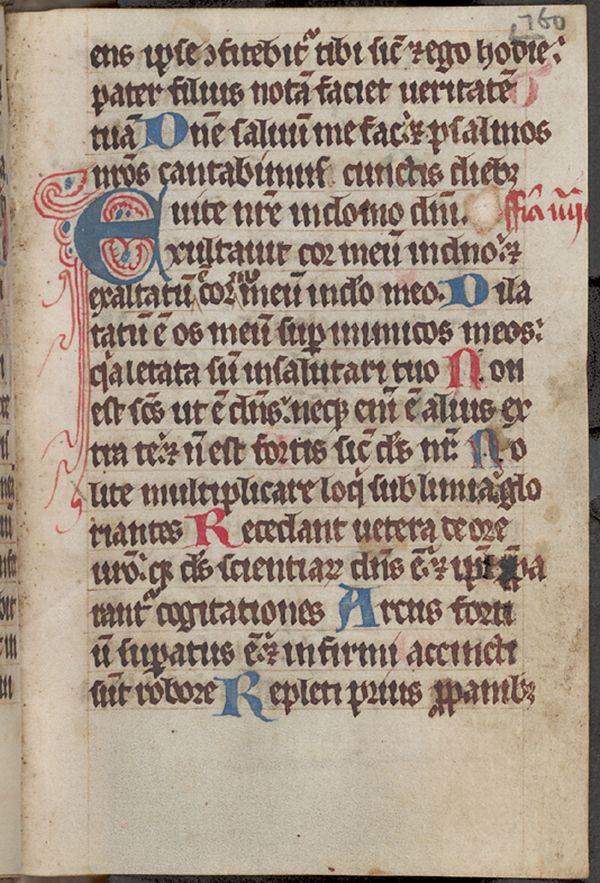 760
ens ipse ↄfitebit᷑ tibi sic̄ ⁊ ego hodie:
pater filiis notā faciet ueritatē
tuā Dn̄e saluū me fac: ⁊ psalmos
nr̄os cantabimus cunctis dieb⁊
uite nr̄e in domo dn̄i. ffīa iiij
Exultauit cor meū in dn̄o: ⁊
exaltatū ē cornu meū in do meo. Dila
tatū ē os meū suꝑ inimicos meos:
q̄a letata sū in salutari tuo Non
est sc̄s ut ē dn̄s: neq̄ eni ē alius ex
tra te: ⁊ n̄ est fortis sic̄ ds̄ nr̄: No
lite multiplicare loq̄ sublimia: glo
riantes Recedant uetera de ore
uro: q̄ ds̄ scientiaꝝ dn̄s ē: ⁊ ip̄i p̄pa
rant᷑ cogitationes Arcus forti
ū suꝑatus ē: ⁊ infirmi accincti
sūt robore Repleti prius ꝓ panib⁊